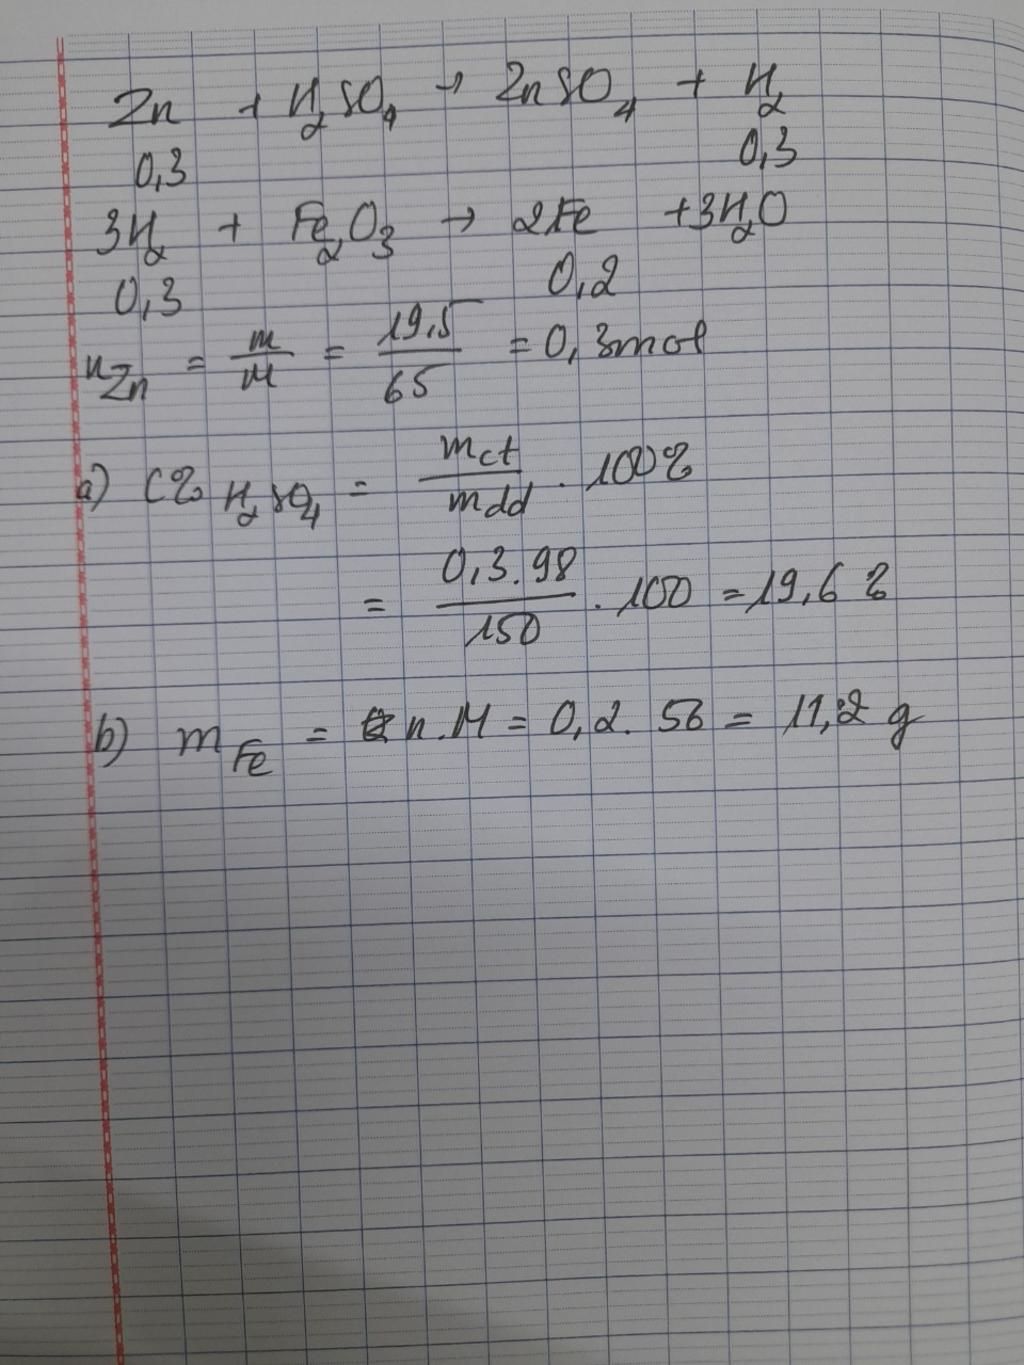 Zn + H₂SO₄ → ZnSO₄ + H₂
0,3 0,3
3H₂ + Fe₂O₃ → 2Fe +3H₂O
0,3 0,2
n_Zn = m/M = 19,5/65 = 0,3mol
a) C% H₂SO₄ = mct/mdd . 100%
= 0,3.98/150 . 100 = 19,6 %
b) m_Fe = n.M = 0,2. 56 = 11,2 g